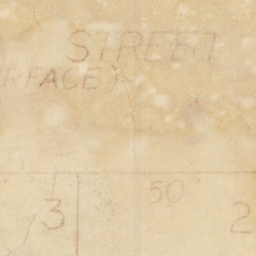 STREET
RFACE)
50'
3 2